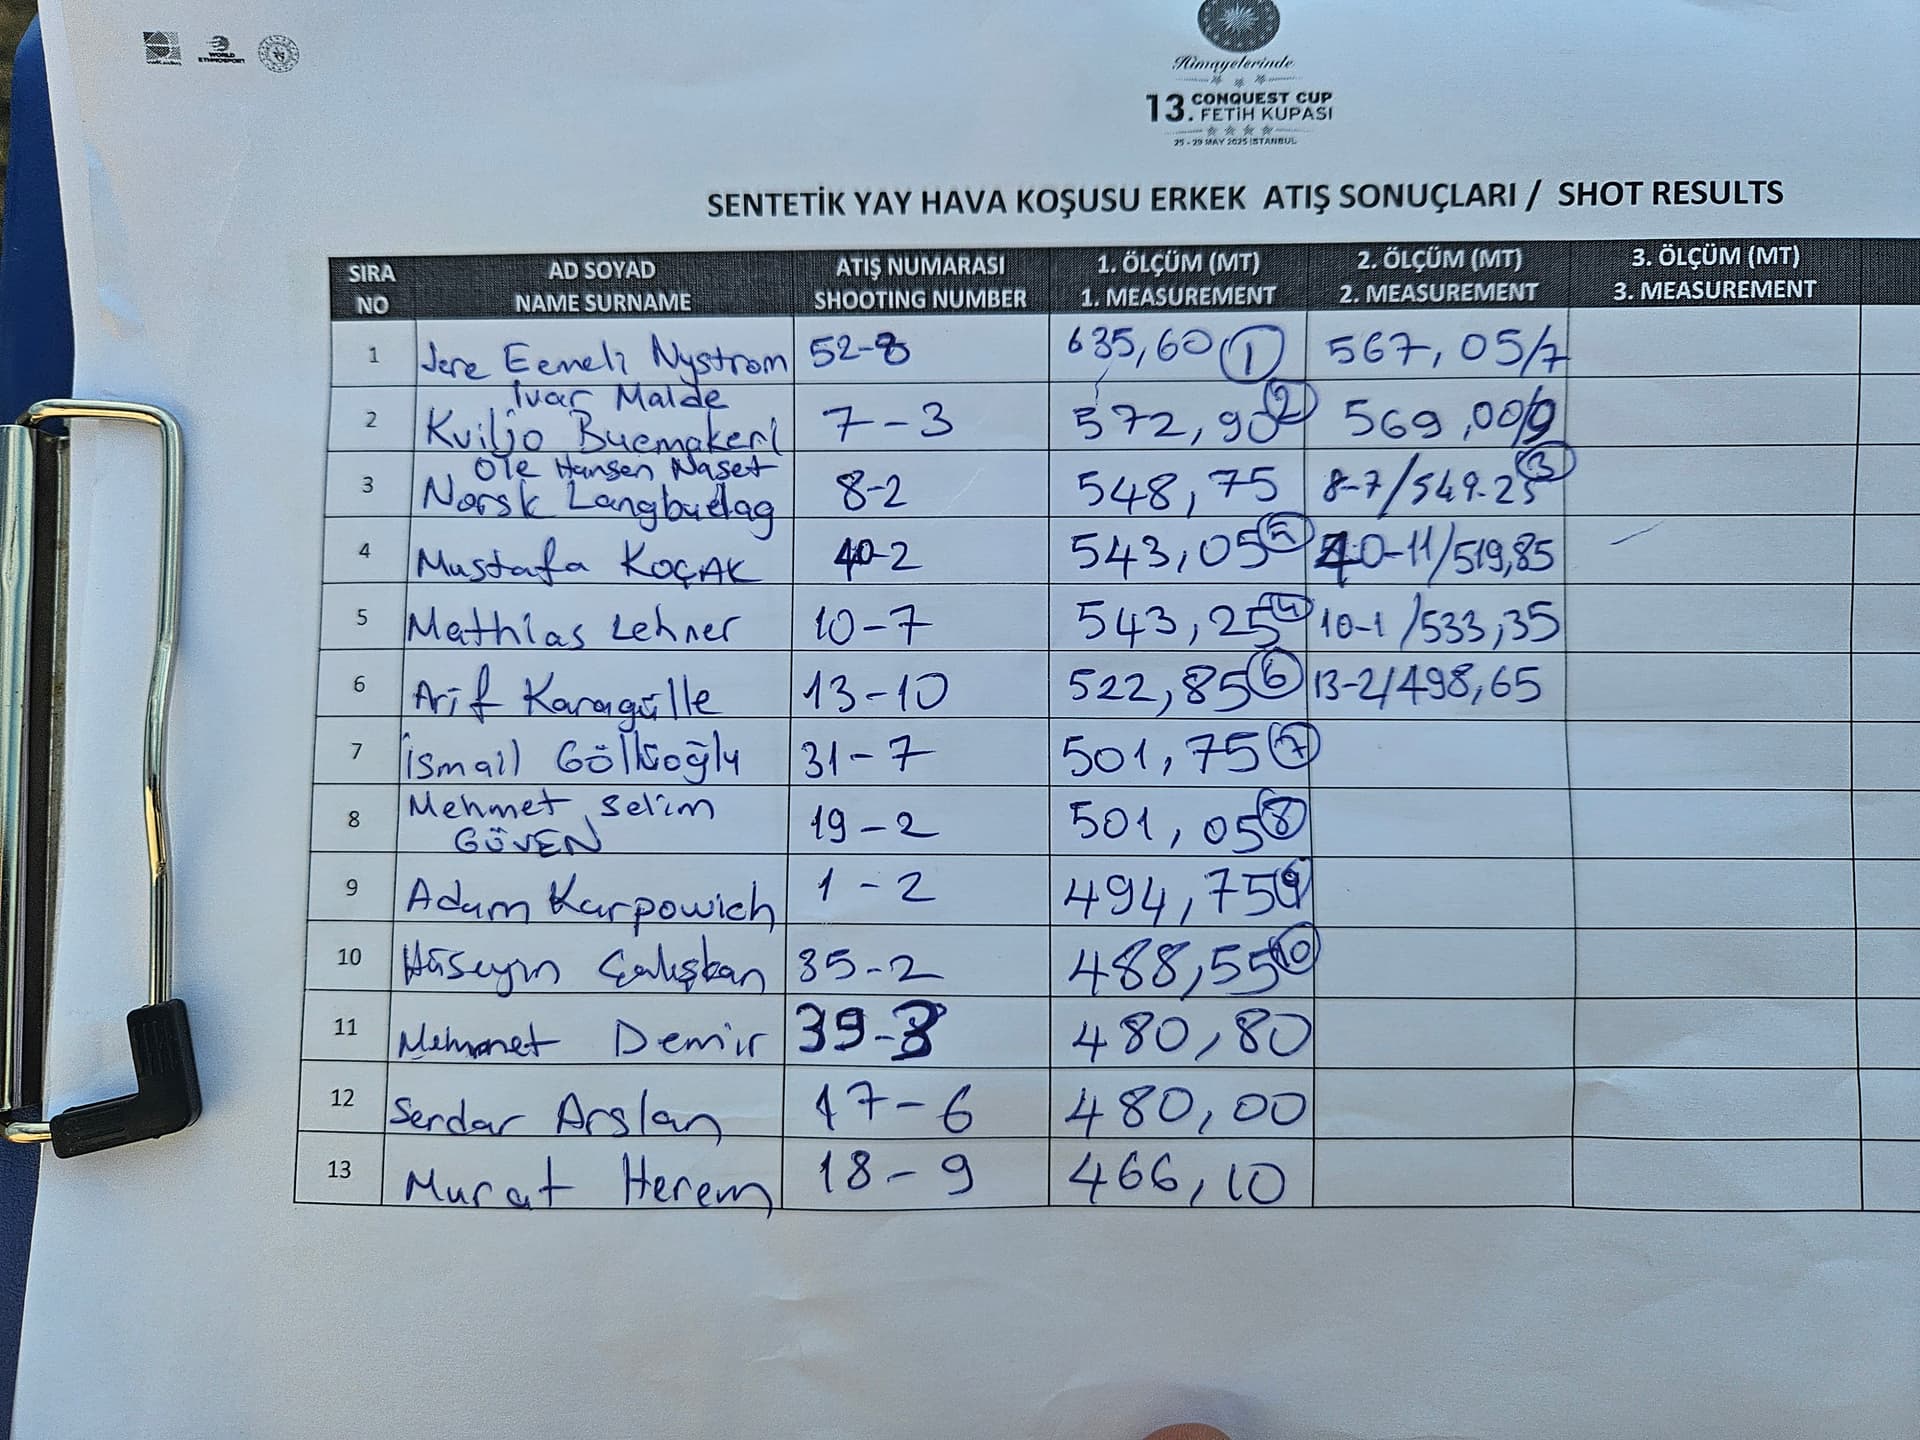 WORLD
ETHNOSPORT
Himayelerinde
13. CONQUEST CUP
FETİH KUPASI
25 - 29 MAY 2025 İSTANBUL
SENTETİK YAY HAVA KOŞUSU ERKEK ATIŞ SONUÇLARI / SHOT RESULTS
SIRA NO AD SOYAD NAME SURNAME ATIŞ NUMARASI SHOOTING NUMBER 1. ÖLÇÜM (MT) 1. MEASUREMENT 2. ÖLÇÜM (MT) 2. MEASUREMENT 3. ÖLÇÜM (MT) 3. MEASUREMENT
1 Jere Eemeli Nystrom 52-8 635,60 1 567,05/7
Ivar Malde
2 Kviljo Buemakeri 7-3 572,90 2 569,00/9
Ole Hansen Naset
3 Norsk Langbuelag 8-2 548,75 8-7/549.25 3
4 Mustafa KOÇAK 40-2 543,05 5 40-11/519,85
5 Mathias Lehner 10-7 543,25 4 10-1/533,35
6 Arif Karagülle 13-10 522,85 6 13-2/498,65
7 İsmail 31-7 501,75 7
8 Mehmet Selim GÜVEN 19-2 501,05 8
9 Adam Karpowich 1-2 494,75 9
10 Hüseyin Çalışkan 35-2 488,55 10
11 Mehmet Demir 39-3 480,80
12 Serdar Arslan 17-6 480,00
13 Murat Herem 18-9 466,10